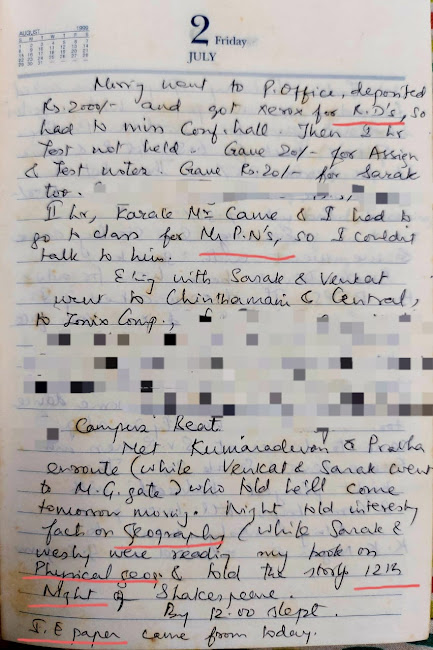 AUGUST 1999
2 Friday
JULY
Mornig went to P.Office, deposited
Rs.2000/- and got xerox for R.D's, so
had to miss Conf.hall. Then I hr
Test not held. Gave 20/- for Assign
& Test notes. Gave Rs.20/- for Sarak
too.
II hr, Karale Mr Came & I had to
go to class for Mr P.N's, so I couldn't
talk to him.
E'ing with Sarak & Venkat
went to Chinthamani & Central,
to Tonix Comp.,
Campus Beat.
Met Kumaradevan & Prabha
enroute (while Venkat & Sarak went
to M.G. gate) who told he'll come
tomorrow morning. Night told interestg
facts on Geography (while Sarak &
were reading my book on
Physical geog. & told the story 12th
Night of Shakespeare.
By 12:00 slept.
I.E paper came from today.